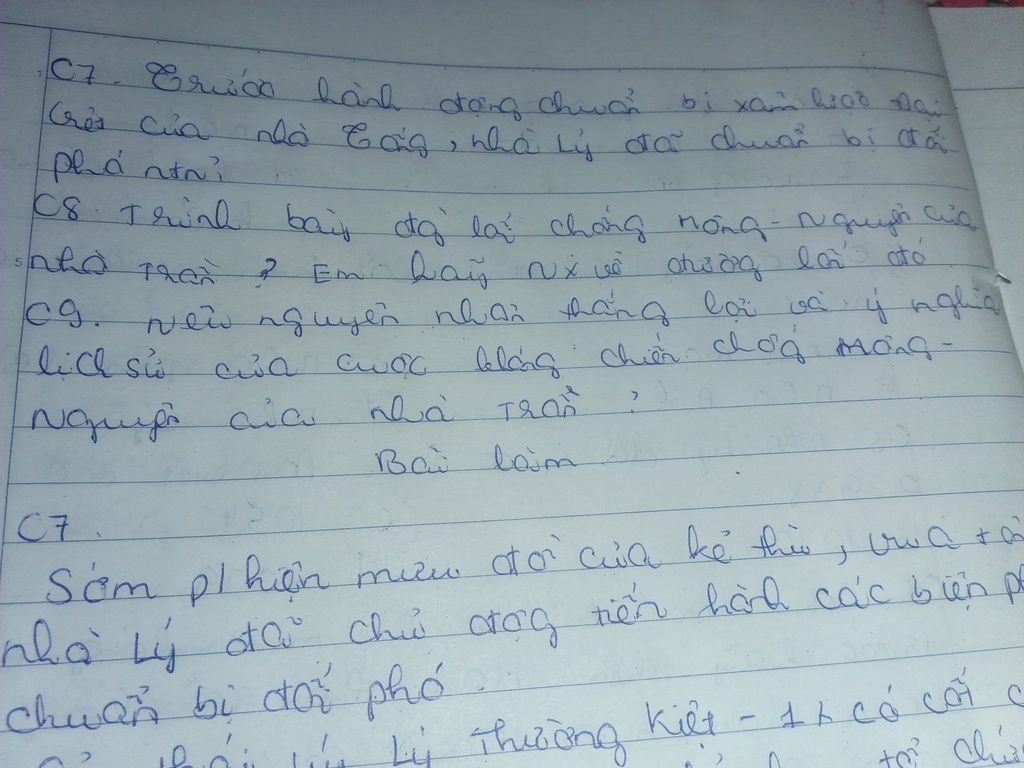 C7. Trước hành động chuẩn bị xâm lược Đại
Việt của nhà Tống, nhà Lý đã chuẩn bị đối
phó ntn?
C8. Trình bày đg lối chống Mông - Nguyên của
nhà Trần? Em hãy NX về đường lối đó
C9. Nêu nguyên nhân thắng lợi và ý nghĩa
lịch sử của cuộc kháng chiến chống Mông -
Nguyên của nhà Trần?
Bài làm
C7.
Sớm p/hiện mưu đồ của kẻ thù, vua tôi
nhà Lý đã chủ động tiến hành các biện
chuẩn bị đối phó.
Lý Thường Kiệt - 1 có cốt